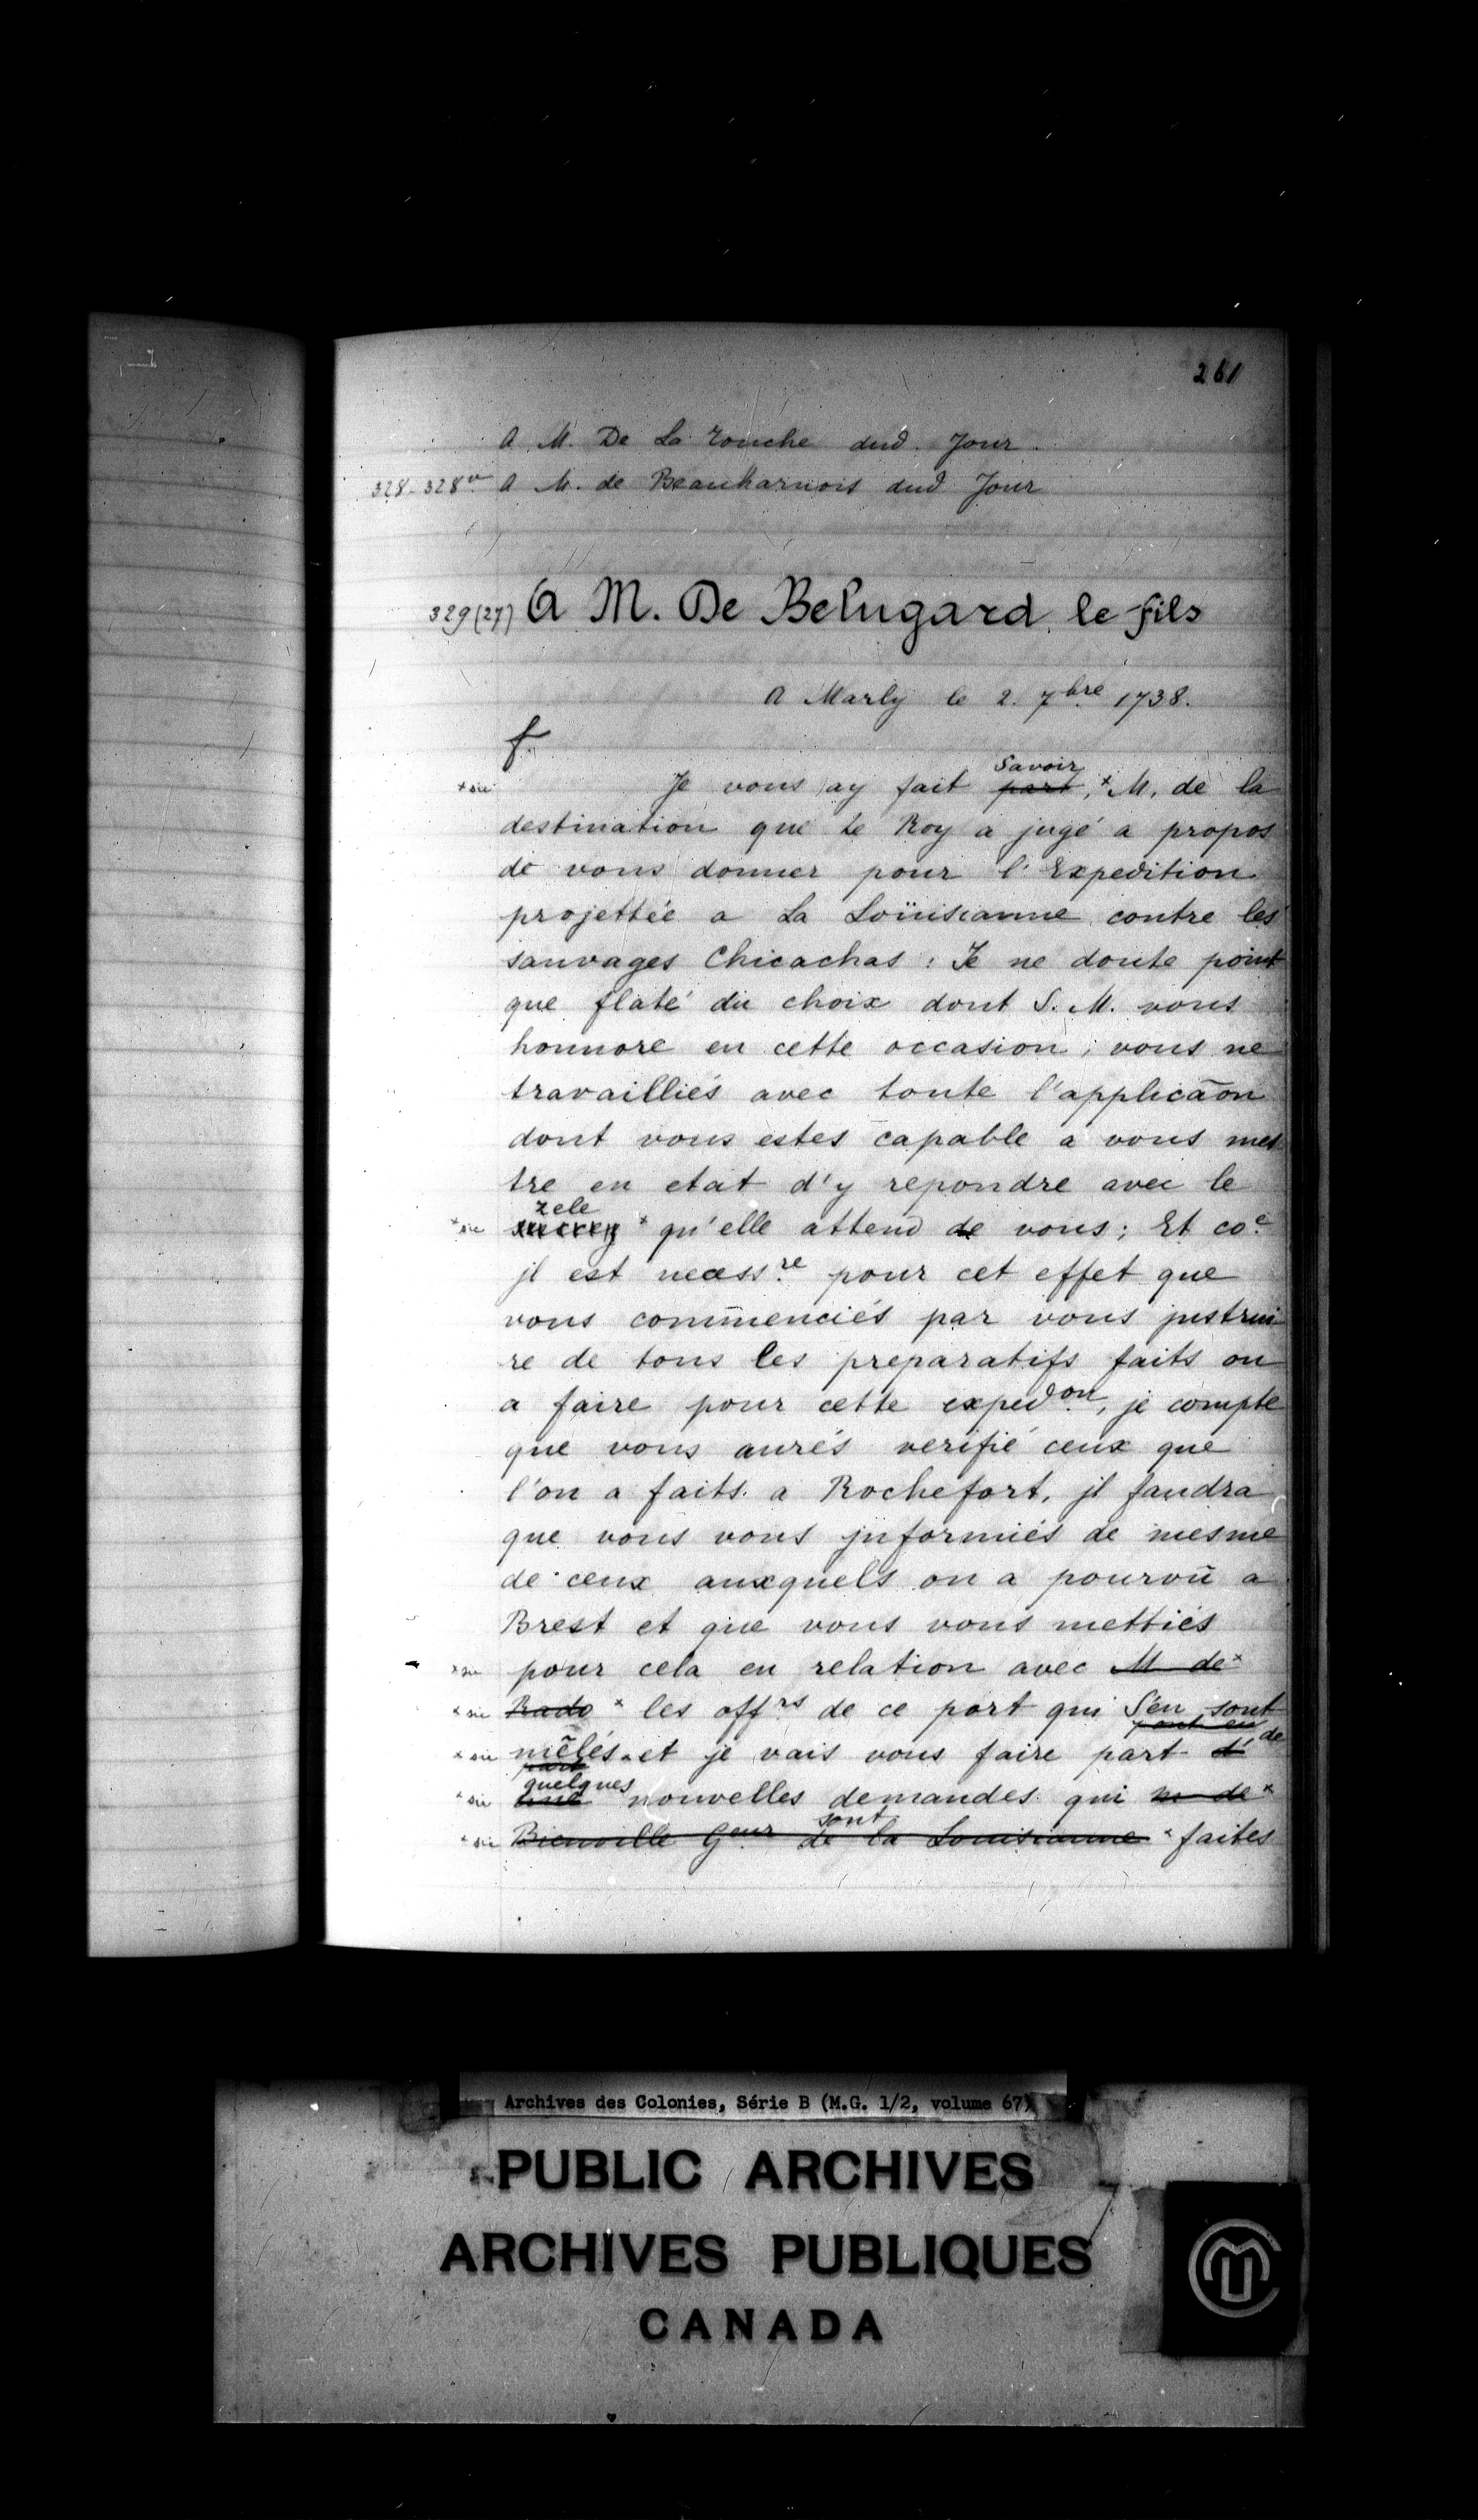 261
A M. De La Touche dud. Jour.
328-328vo A M. de Beauharnois dud Jour
329(27) A M. De Belugard le fils
A Marly le 2. 7bre 1738.
f.
savoir
*sic Je vous ay fait part,* M. de la
destination que Le Roy a jugé a propos
de vous donner pour l'Expedition
projettée a La Loüisianne contre les
sauvages Chicachas : Je ne doute point
que flaté du choix dont S. M. vous
honnore en cette occasion ; vous ne
travailliés avec toute l'applicãon
dont vous estes capable a vous met
tre en etat d'y repondre avec le
zele
*sic succez * qu'elle attend de vous ; Et coe
jl est necessre pour cet effet que
vous com̄enciés par vous jnstrui
re de tous les preparatifs faits ou
a faire pour cette expedon, je compte
que vous aurés verifié ceux que
l'on a faits a Rochefort, jl faudra
que vous vous jnformiés de mesme
de ceux auxquels on a pourvû a
Brest et que vous vous mettiés
*sic pour cela en relation avec M de*
*sic Rado * les offrs de ce port qui S'en sont
de
*sic mêlés et je vais vous faire part d'
quelques
*sic une nouvelles demandes qui m de*
sont
*sic Bienville Geur de la Louisianne * faites
Archives des Colonies, Série B (M.G. 1/2, volume 67)
PUBLIC ARCHIVES
ARCHIVES PUBLIQUES
CANADA